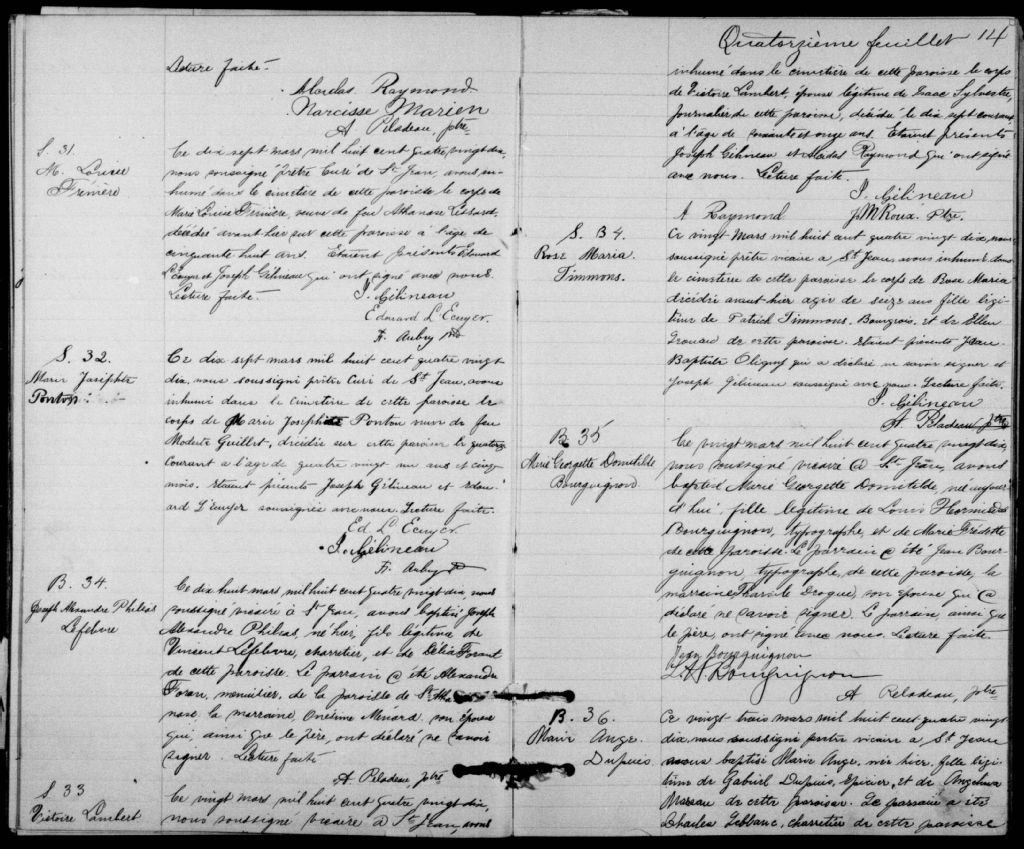 Lecture faite.
Alcidas Raymond
Narcisse Marien
A Peladeau, ptre
S. 31.
M. Louise
Frénière
Ce dix sept mars mil huit cent quatre vingt dix,
nous soussigné prêtre Curé de St Jean, avons in-
humé dans le cimetière de cette paroisse le corps de
Marie Louise Frénière, veuve de feu Athanase Lessard,
décédée avant hier sur cette paroisse à l'âge de
cinquante huit ans. Etaient présents Edouard
L'Ecuyer et Joseph Gélineau qui ont signé avec nous.
Lecture faite.
J. Gélineau
Edouard L Ecuyer.
F. Aubry Ptre
S. 32.
Marie Josephte
Ponton
Ce dix sept mars mil huit cent quatre vingt
dix, nous soussigné prêtre Curé de St Jean, avons
inhumé dans le cimetière de cette paroisse le
corps de Marie Josephte Ponton veuve de feu
Modeste Guillet, décédée sur cette paroisse le quatorze
courant a l'age de quatre vingt un ans et cinq
mois. Etaient présents Joseph Gélineau et Edou-
ard L'Ecuyer soussignés avec nous. Lecture faite.
Ed L Ecuyer
J. Gélineau
F. Aubry P
B. 34.
Joseph Alexandre Philéas
Lefebvre
Ce dix huit mars mil huit cent quatre vingt dix nous
soussigné vicaire à St Jean, avons baptisé Joseph
Alexandre Philéas, né hier, fils légitime de
Vincent Lefebvre, charretier, et de Délia Foran
de cette paroisse. Le parrain a été Alexandre
Foran, menuisier, de la paroisse de St Atha-
nase la marraine Onésime Ménard son épouse
qui, ainsi que le père, ont déclaré ne savoir
signer. Lecture faite
A Peladeau ptre
S. 33
Victoire Lambert
Ce vingt mars mil huit cent quatre vingt dix,
nous soussigné vicaire à St Jean, avons
Quatorzième feuillet 14
inhumé dans le cimetière de cette paroisse le corps
de Victoire Lambert, épouse légitime de Isaac Sylvestre,
journalier de cette paroisse, décédée le dix sept courant
à l'âge de soixante et onze ans. Etaient présents
Joseph Gélineau et Alcidas Raymond qui ont signé
avec nous. Lecture faite.
J. Gélineau
A Raymond J M Roux. Ptre.
S. 34.
Rose Maria
Timmons.
Ce vingt mars mil huit cent quatre vingt dix, nous
soussigné prêtre vicaire a St Jean, avons inhumé dans
le cimetière de cette paroisse le corps de Rose Maria
décédée avant-hier agée de seize ans fille légi-
time de Patrick Timmons, Bourgeois, et de Ellen
de cette paroisse. Etaient présents Jean
Baptiste Oligny qui a déclaré ne savoir signer et
Joseph Gélineau soussigné avec nous. Lecture faite.
J. Gélineau
A. Peladeau, ptre
B. 35
Marie Georgette Domitilde
Bourguignon.
Ce vingt mars mil huit cent quatre vingt dix,
nous soussigné vicaire à St Jean, avons
baptisé Marie Georgette Domitilde, née aujour-
d'hui, fille légitime de Louis Hormisdas
Bourguignon, typographe, et de Marie
de cette paroisse. Le parrain a été Jean Bour-
guignon, typographe, de cette paroisse, la
marraine Drogue, son épouse qui a
déclaré ne savoir signer. Le parrain ainsi que
le père, ont signé avec nous. Lecture faite.
Jean Bourguignon
L H Bourguignon
A Peladeau, ptre
B. 36.
Marie Ange
Dupuis
Ce vingt trois mars mil huit cent quatre vingt
dix, nous soussigné prêtre vicaire a St Jean
avons baptisé Marie Ange, née hier, fille légi-
time de Gabriel Dupuis, Epicier, et de Angelina
de cette paroisse. Le parrain a été
Charles Leblanc, charretier de cette paroisse